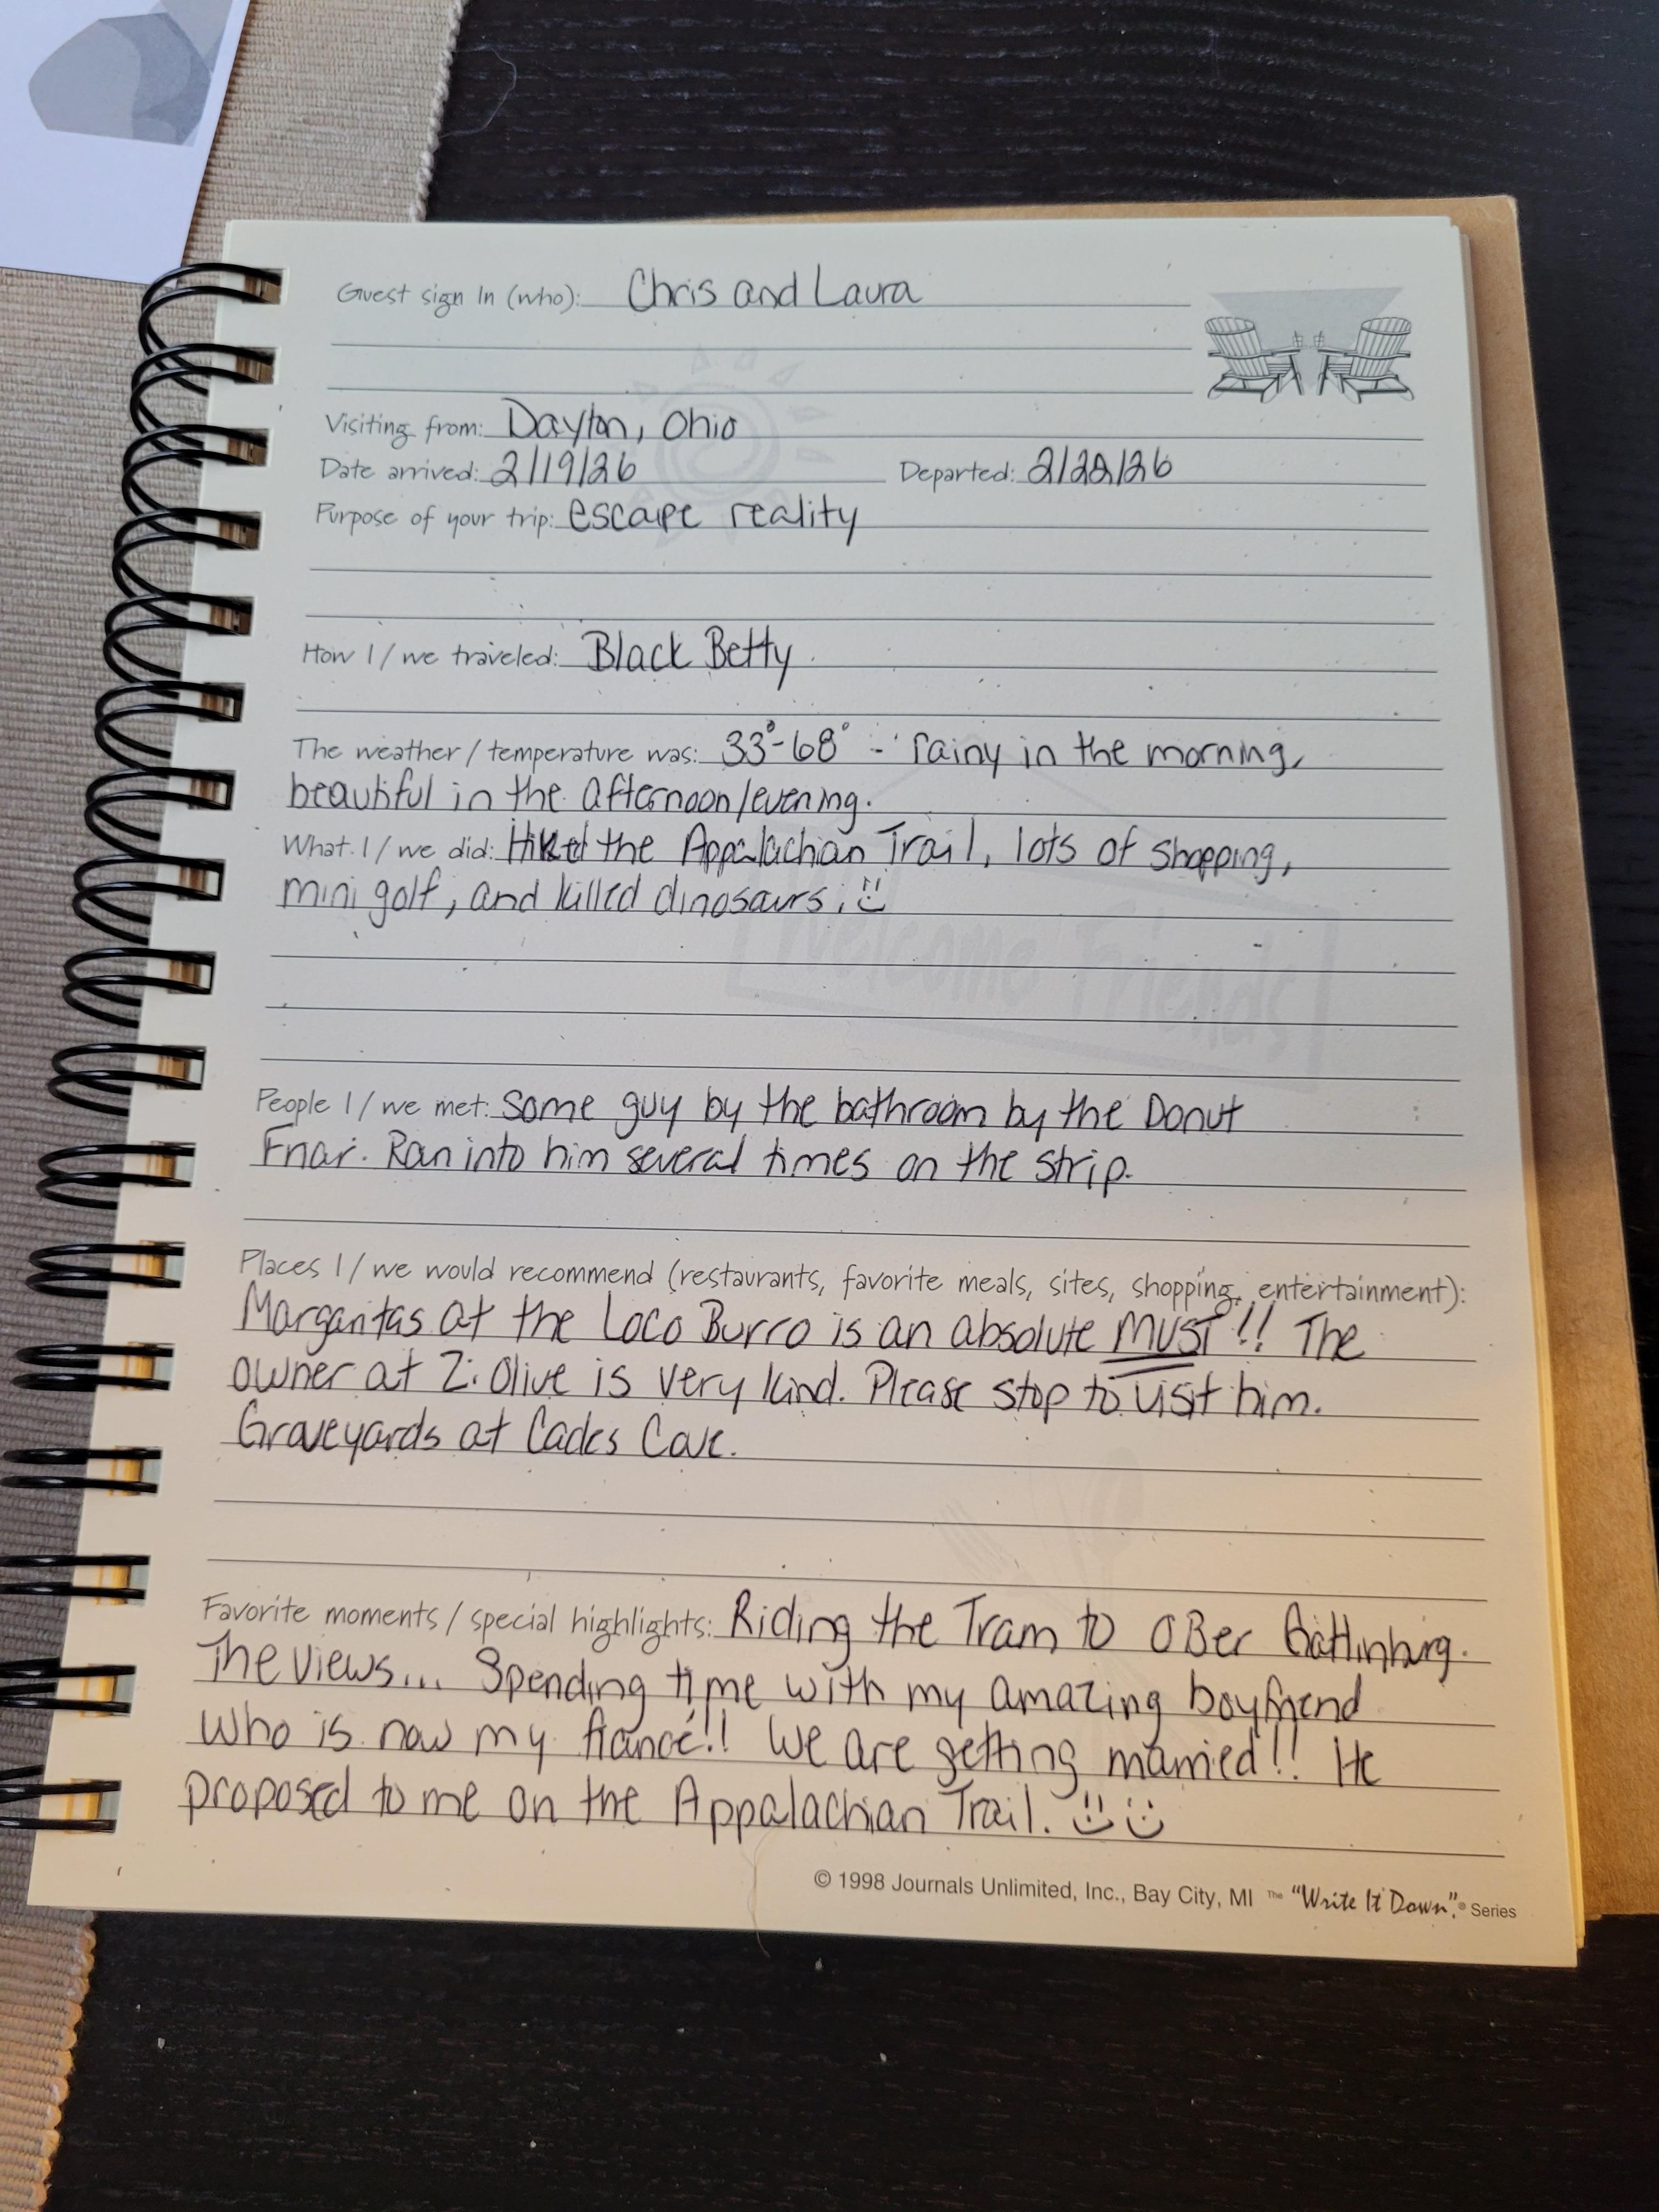 Guest sign In (who): Chris and Laura
Visiting from: Dayton, Ohio
Date arrived: 2/19/26 Departed: 2/22/26
Purpose of your trip: escape reality
How I / we traveled: Black Betty
The weather / temperature was: 33°-68° - rainy in the morning,
beautiful in the afternoon/evening.
What I / we did: Hiked the Appalachian Trail, lots of shopping,
mini golf, and killed dinosaurs
Welcome Friends
People I / we met: Some guy by the bathroom by the Donut
Friar. Ran into him several times on the strip.
Places I / we would recommend (restaurants, favorite meals, sites, shopping, entertainment):
Margaritas at the Loco Burro is an absolute MUST!! The
owner at Z. Olive is very kind. Please stop to visit him.
Graveyards at Cades Cove.
Favorite moments / special highlights: Riding the Tram to OBer Gattinburg.
The views... Spending time with my amazing boyfriend
who is now my fiancé!! We are getting married!! He
proposed to me on the Appalachian Trail.
© 1998 Journals Unlimited, Inc., Bay City, MI ™ "Write It Down".® Series